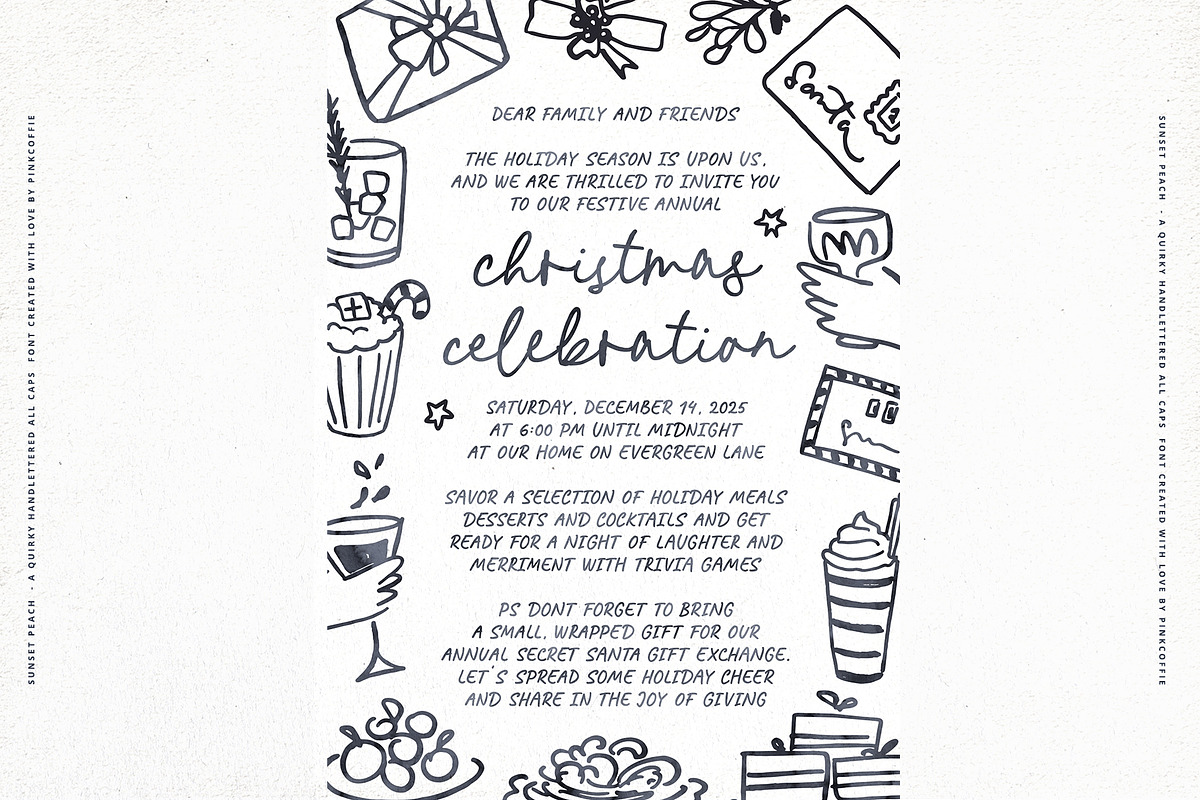 SUNSET PEACH - A QUIRKY HANDLETTERED ALL CAPS FONT CREATED WITH LOVE BY PINKCOFFIE
Santa
DEAR FAMILY AND FRIENDS
THE HOLIDAY SEASON IS UPON US,
AND WE ARE THRILLED TO INVITE YOU
TO OUR FESTIVE ANNUAL
christmas
celebration
SATURDAY, DECEMBER 14, 2025
AT 6:00 PM UNTIL MIDNIGHT
AT OUR HOME ON EVERGREEN LANE
SAVOR A SELECTION OF HOLIDAY MEALS
DESSERTS AND COCKTAILS AND GET
READY FOR A NIGHT OF LAUGHTER AND
MERRIMENT WITH TRIVIA GAMES
PS DONT FORGET TO BRING
A SMALL, WRAPPED GIFT FOR OUR
ANNUAL SECRET SANTA GIFT EXCHANGE.
LET'S SPREAD SOME HOLIDAY CHEER
AND SHARE IN THE JOY OF GIVING
SUNSET PEACH - A QUIRKY HANDLETTERED ALL CAPS FONT CREATED WITH LOVE BY PINKCOFFIE